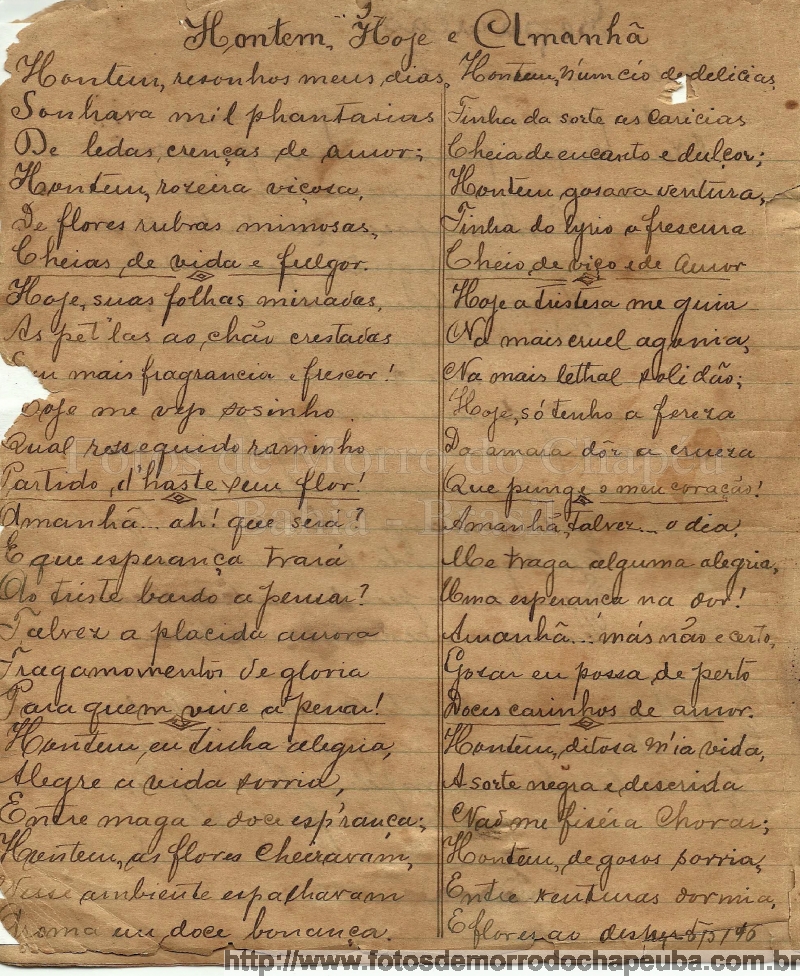 Hontem, Hoje e Amanhã
Hontem, resonhos meus dias,
Sonhava mil phantasias
De ledas, crenças de amor;
Hontem, rozeira viçosa,
De flores rubras mimosas,
Cheias de vida e fulgor.
Hoje, suas folhas mirradas,
As pet'las ao chão crestadas
Sem mais fragrancia e frescor!
Hoje me vejo sosinho
Qual resseguido raminho
Partido, d'haste sem flor!
Amanhã... ah! que será?
E que esperança trará
Ao triste bardo a pensar?
Talvez a placida aurora
Traga momentos de gloria
Para quem vive a penar!
Hontem, eu tinha alegria,
Alegre a vida sorria,
Entre maga e doce esp'rança;
Hontem, as flores cheiravam,
Nesse ambiente espalhavam
Aroma em doce bonança.
Hontem, n'um cio de delicias,
Tinha da sorte as caricias
Cheia de encanto e dulçor;
Hontem gosava ventura,
Tinha do lyrio a frescura
Cheio, de viço e de Amor
Hoje a tristesa me guia
Na mais cruel agonia,
Na mais lethal solidão;
Hoje, só tenho a fereza
Da amara dôr a crueza
Que punge o meu coração!
Amanhã, talvez... o dia,
Me traga alguma alegria,
Uma esperança na dor!
Amanhã... mas não e certo,
Gosar eu possa, de perto
Doces carinhos de amor.
Hontem, ditosa m'ia vida,
A sorte negra e descrida
Não me fiséra chorar;
Hontem, de gosos sorria,
Entre venturas dormia,
E flores ao
Fotos de Morro do Chapéu
Bahia - Brasil
http://www.fotosdemorrodochapeuba.com.br